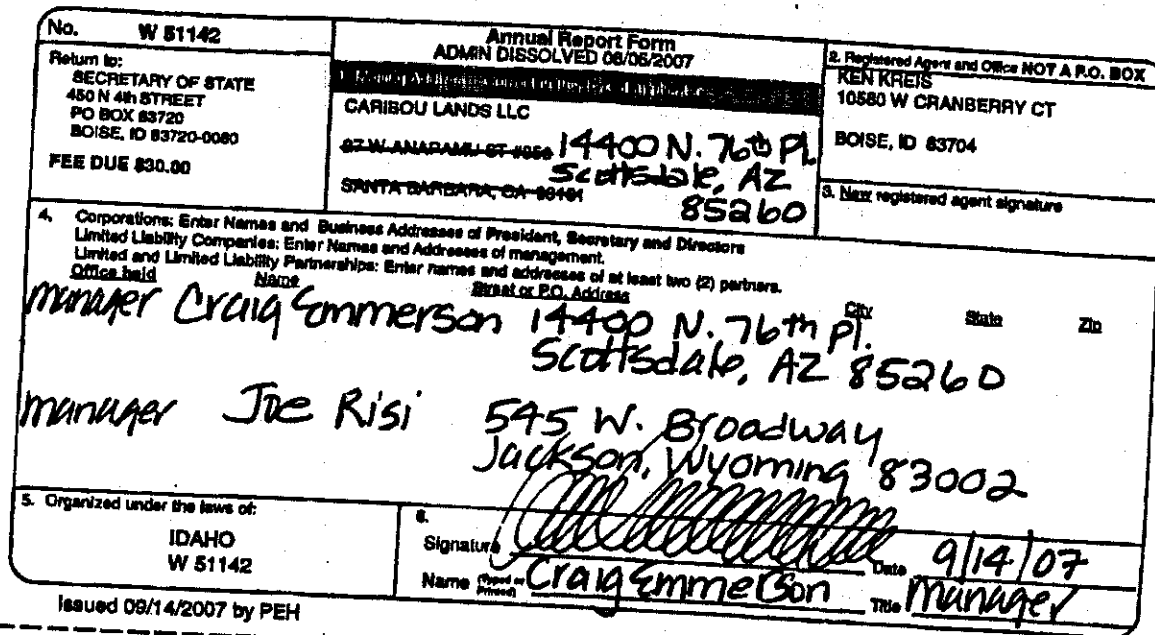 No. W 51142
Return to:
SECRETARY OF STATE
450 N 4th STREET
PO BOX 83720
BOISE, ID 83720-0080
FEE DUE $30.00
Annual Report Form
ADMIN DISSOLVED 06/06/2007
1. Mailing Address
CARIBOU LANDS LLC
14400 N. 76th Pl.
Scottsdale, AZ
SANTA BARBARA, CA
85260
2. Registered Agent and Office NOT A P.O. BOX
KEN KREIS
10580 W CRANBERRY CT
BOISE, ID 83704
3. New registered agent signature
4. Corporations: Enter Names and Business Addresses of President, Secretary and Directors
Limited Liability Companies: Enter Names and Addresses of management.
Limited and Limited Liability Partnerships: Enter names and addresses of at least two (2) partners.
Office held Name Street or P.O. Address City State Zip
manager Craig Emmerson 14400 N. 76th Pl.
Scottsdale, AZ 85260
manager Joe Risi 545 W. Broadway
Jackson, Wyoming 83002
5. Organized under the laws of:
IDAHO
W 51142
6.
Signature Date 9/14/07
Name (Typed or Printed) Craig Emmerson Title Manager
Issued 09/14/2007 by PEH